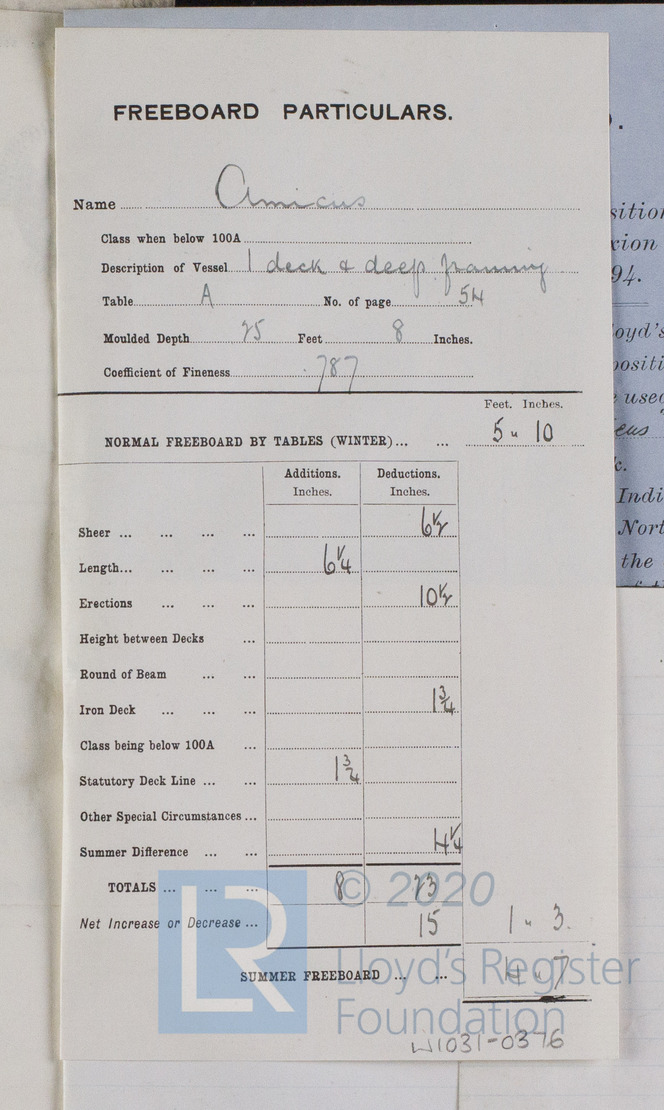 FREEBOARD PARTICULARS.
Name Amicus
Class when below 100A
Description of Vessel 1 deck & deep framing
Table A No. of page 54
Moulded Depth 25 Feet 8 Inches.
Coefficient of Fineness .787
Feet. Inches.
NORMAL FREEBOARD BY TABLES (WINTER)... ... 5 " 10
Additions. Deductions.
Inches. Inches.
Sheer ... ... ... ... 6½
Length... ... ... ... 6¼
Erections ... ... ... 10½
Height between Decks ...
Round of Beam ... ...
Iron Deck ... ... ... 1¾
Class being below 100A ...
Statutory Deck Line ... ... 1¾
Other Special Circumstances ...
Summer Difference ... ... 4¼
TOTALS ... ... ... 8 23
Net Increase or Decrease ... 15 1 " 3.
SUMMER FREEBOARD ... ... 4 " 7
LR
© 2020
Lloyd's Register
Foundation
W1031-0376
94.
oyd's
use
k.
Indi
Nort
the